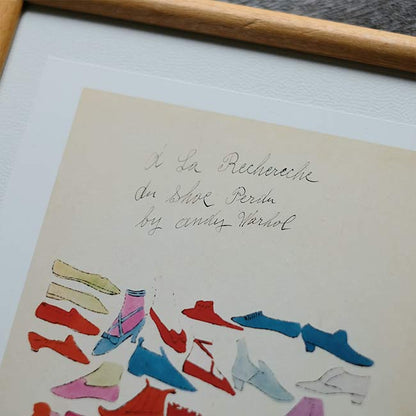 A La Recherche
du Shoe Perdu
by andy Warhol